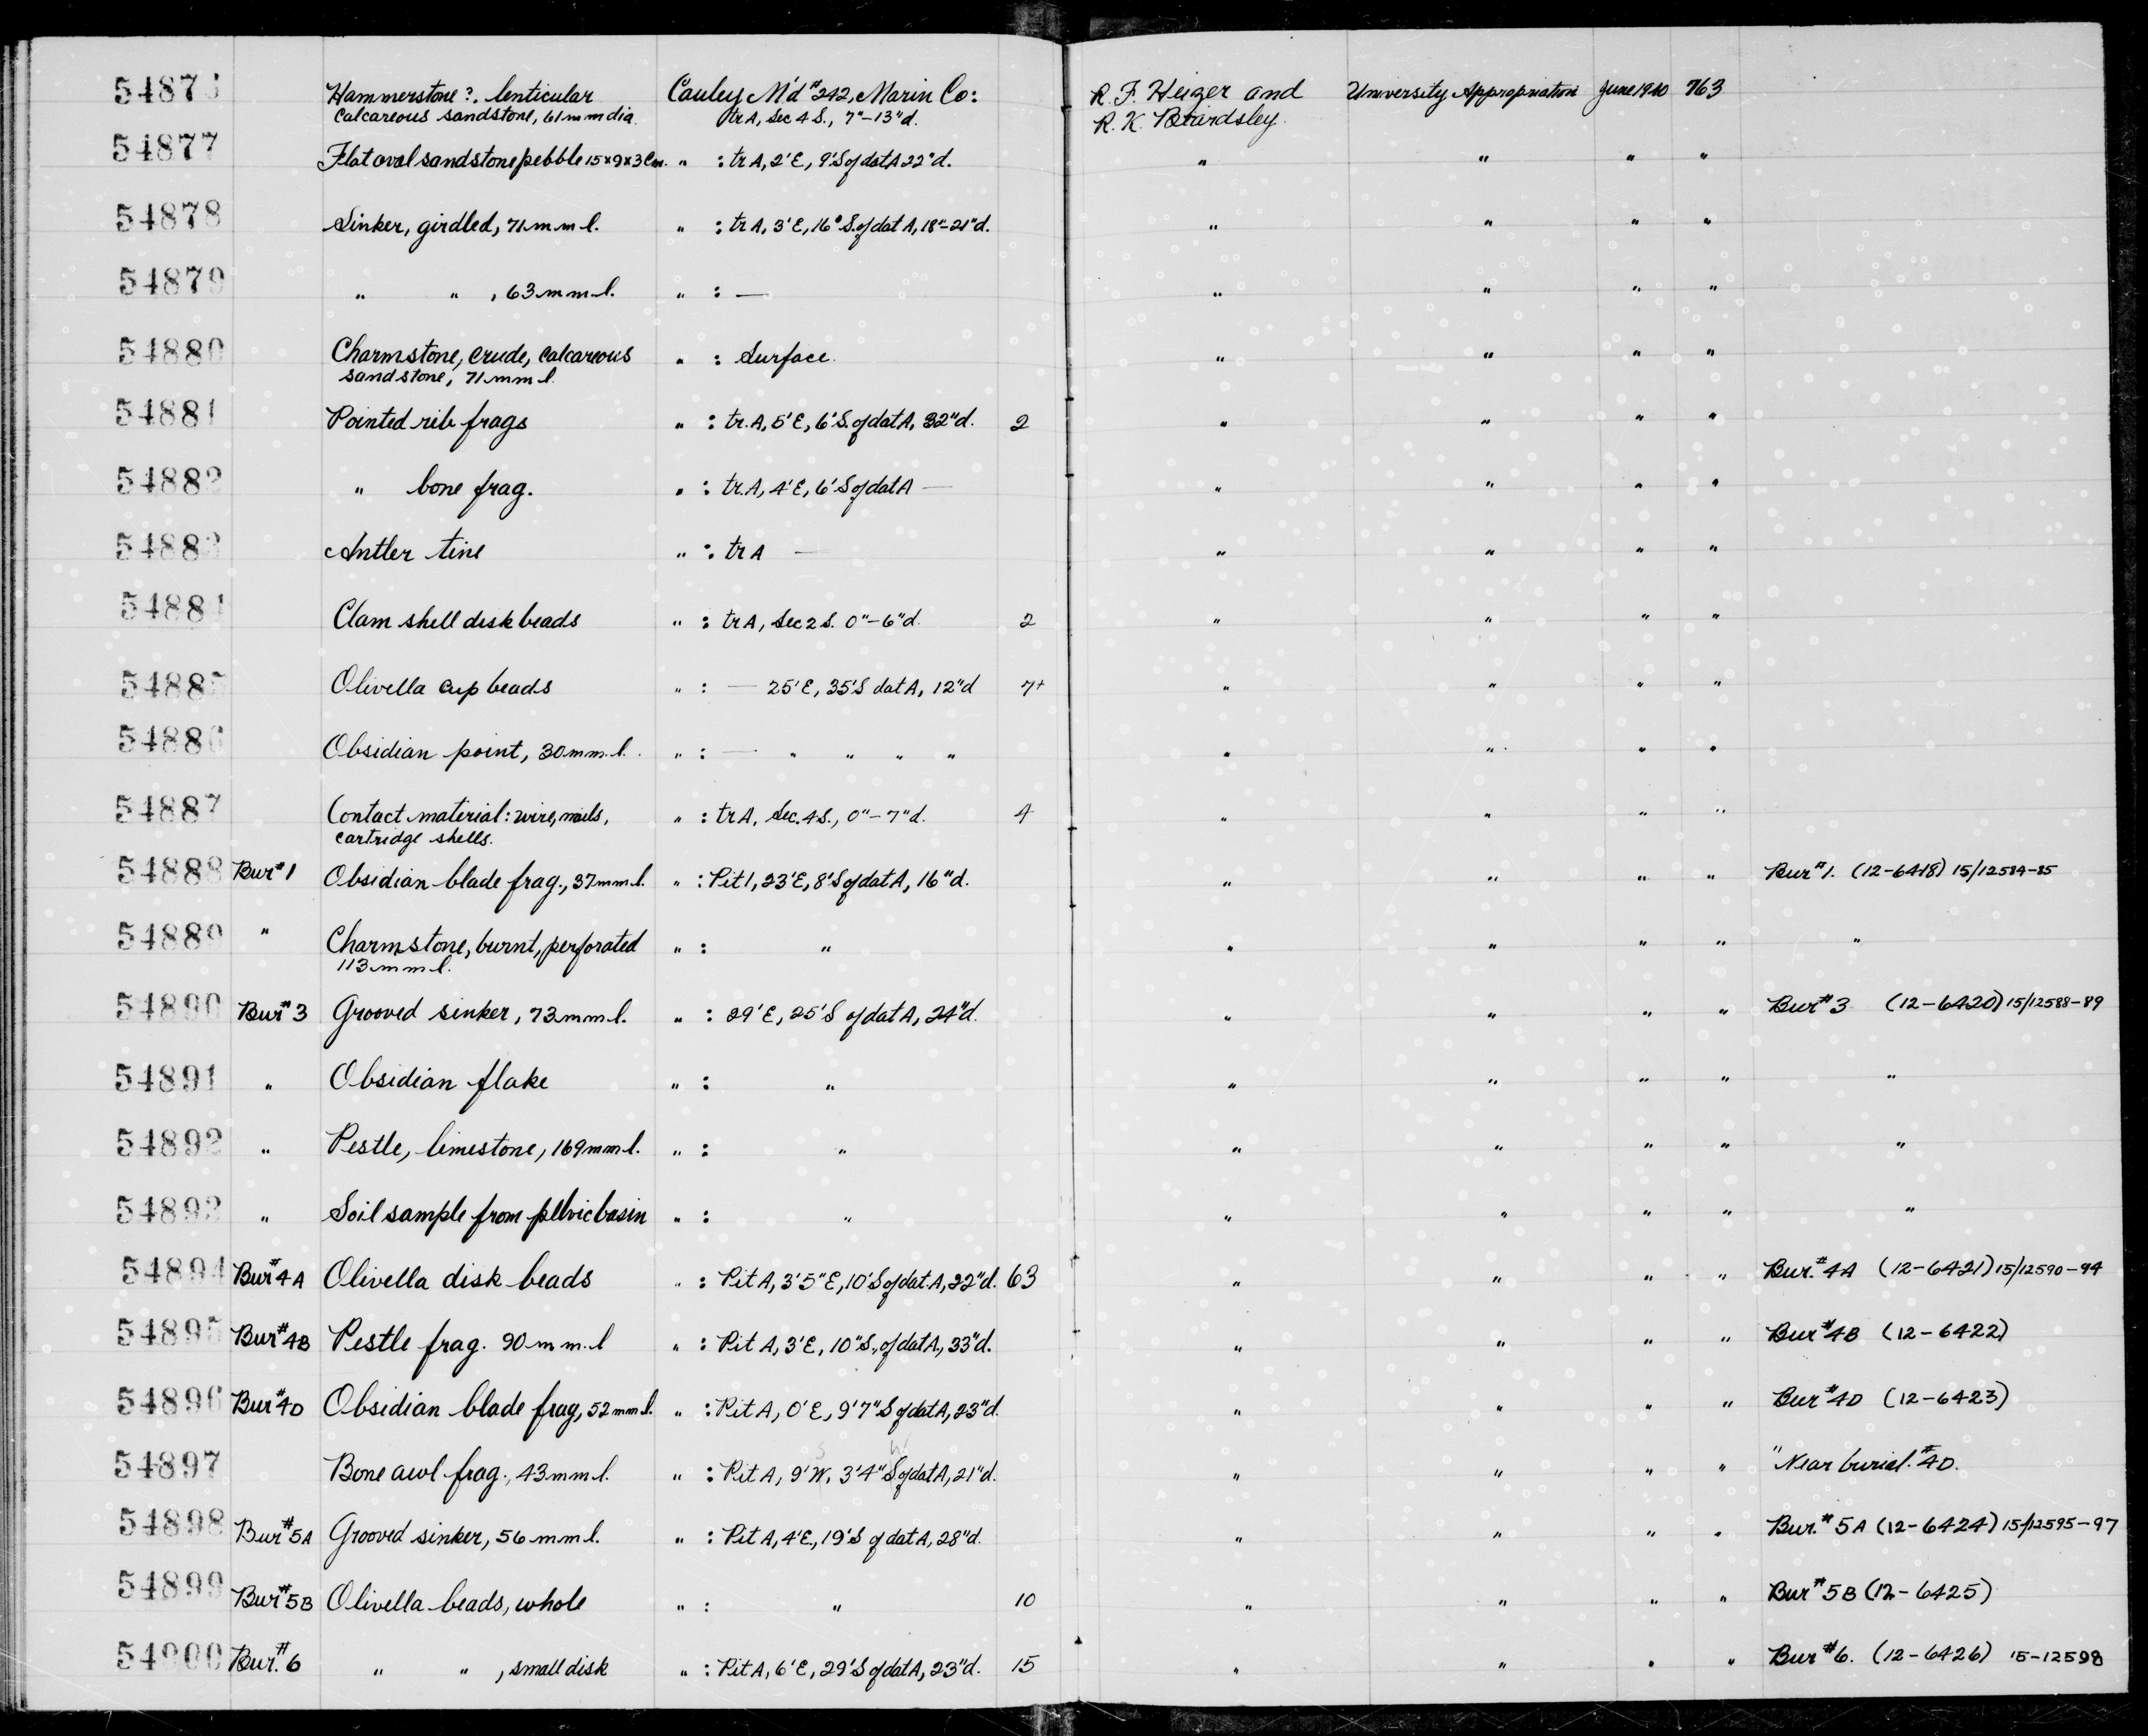 5487 Hammerstone?, lenticular Cauley M'd #242, Marin Co: R. F. Heizer and University Appropriation June 1940 763
calcareous sandstone, 61 mm dia. tr A, Sec 4 S., 7"-13"d. R. K. Beardsley.
54877 Flat oval sandstone pebble 15x9x3 cm. " : tr A, 2'E, 9'S of dat A 22"d. " " " "
54878 Sinker, girdled, 71 mm l. " : tr A, 3'E, 16" S. of dat A, 18"-21"d. " " " "
54879 " " , 63 mm l. " : — " " " "
54880 Charmstone, crude, calcareous " : Surface. " " " "
sandstone, 71 mm l.
54881 Pointed rib frags " : tr. A, 5'E, 6'S. of dat A, 32"d. 2 " " " "
54882 " bone frag. " : tr. A, 4'E, 6'S of dat A — " " " "
54883 Antler tine " : tr A — " " " "
54884 Clam shell disk beads " : tr A, Sec 2 S. 0"-6"d. 2 " " " "
54885 Olivella cup beads " : — 25'E, 35'S dat A, 12"d 7+ " " " "
54886 Obsidian point, 30 mm. l. " : — " " " " " " " "
54887 Contact material: wire, nails, " : tr A, Sec. 4 S., 0"-7"d. 4 " " " "
cartridge shells.
54888 Bur #1 Obsidian blade frag., 37 mm l. " : Pit 1, 23'E, 8'S of dat A, 16"d. " " " " Bur #1. (12-6418) 15/12584-85
54889 " Charmstone, burnt, perforated " : " " " " " "
113 mm l.
54890 Bur #3 Grooved sinker, 73 mm l. " : 29'E, 25'S of dat A, 24"d. " " " " Bur #3 (12-6420) 15/12588-89
54891 " Obsidian flake " : " " " " " "
54892 " Pestle, limestone, 169 mm l. " : " " " " " "
54893 " Soil sample from pelvic basin " : " " " " " "
54894 Bur #4A Olivella disk beads " : Pit A, 3'5"E, 10'S of dat A, 22"d. 63 " " " " Bur. #4A (12-6421) 15/12590-94
54895 Bur #4B Pestle frag. 90 mm. l " : Pit A, 3'E, 10"S., of dat A, 33"d. " " " " Bur #4B (12-6422)
54896 Bur #4D Obsidian blade frag, 52 mm l. " : Pit A, 0'E, 9'7"S of dat A, 23"d. " " " " Bur #4D (12-6423)
54897 Bone awl frag., 43 mm l. " : Pit A, 9'W, 3'4"S of dat A, 21"d. " " " " "Near burial #4D.
54898 Bur #5A Grooved sinker, 56 mm l. " : Pit A, 4'E, 19'S of dat A, 28"d. " " " " Bur. #5A (12-6424) 15/12595-97
54899 Bur #5B Olivella beads, whole " : " 10 " " " " Bur #5B (12-6425)
54900 Bur. #6 " " , small disk " : Pit A, 6'E, 29'S of dat A, 23"d. 15 " " " " Bur #6. (12-6426) 15-12598